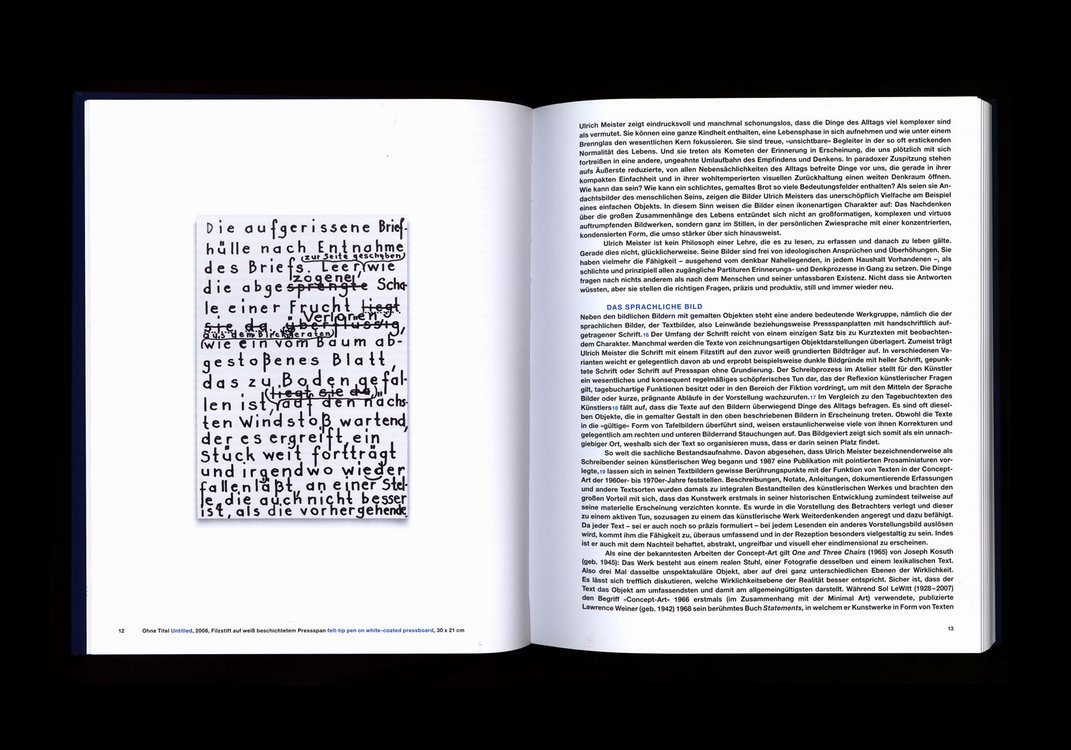 Die aufgerissene Brief-
hülle nach Entnahme
(zur Seite geschoben)
des Briefs. Leer, wie
zogene,
die abgesprengte Scha-
le einer Frucht liegt
Verloren,
sie da, überflüssig,
aus dem Blick geraten)
(wie ein vom Baum ab-
gestoßenes Blatt,
das zu Boden gefal-
(liegt sie da,)
len ist, auf den nächs-
ten Windstoß wartend,
der es ergreift, ein
Stück weit fortträgt
und irgendwo wieder
fallenläßt an einer Stel-
le, die auch nicht besser
ist, als die vorhergehende.
12 Ohne Titel Untitled, 2006, Filzstift auf weiß beschichtetem Pressspan felt-tip pen on white-coated pressboard, 30 x 21 cm
Ulrich Meister zeigt eindrucksvoll und manchmal schonungslos, dass die Dinge des Alltags viel komplexer sind
als vermutet. Sie können eine ganze Kindheit enthalten, eine Lebensphase in sich aufnehmen und wie unter einem
Brennglas den wesentlichen Kern fokussieren. Sie sind treue, »unsichtbare« Begleiter in der so oft erstickenden
Normalität des Lebens. Und sie treten als Kometen der Erinnerung in Erscheinung, die uns plötzlich mit sich
fortreißen in eine andere, ungeahnte Umlaufbahn des Empfindens und Denkens. In paradoxer Zuspitzung stehen
aufs Äußerste reduzierte, von allen Nebensächlichkeiten des Alltags befreite Dinge vor uns, die gerade in ihrer
kompakten Einfachheit und in ihrer wohltemperierten visuellen Zurückhaltung einen weiten Denkraum öffnen.
Wie kann das sein? Wie kann ein schlichtes, gemaltes Brot so viele Bedeutungsfelder enthalten? Als seien sie An-
dachtsbilder des menschlichen Seins, zeigen die Bilder Ulrich Meisters das unerschöpflich Vielfache am Beispiel
eines einfachen Objekts. In diesem Sinn weisen die Bilder einen ikonenartigen Charakter auf: Das Nachdenken
über die großen Zusammenhänge des Lebens entzündet sich nicht an großformatigen, komplexen und virtuos
auftrumpfenden Bildwerken, sondern ganz im Stillen, in der persönlichen Zwiesprache mit einer konzentrierten,
kondensierten Form, die umso stärker über sich hinausweist.
Ulrich Meister ist kein Philosoph einer Lehre, die es zu lesen, zu erfassen und danach zu leben gälte.
Gerade dies nicht, glücklicherweise. Seine Bilder sind frei von ideologischen Ansprüchen und Überhöhungen. Sie
haben vielmehr die Fähigkeit – ausgehend vom denkbar Naheliegenden, in jedem Haushalt Vorhandenen –, als
schlichte und prinzipiell allen zugängliche Partituren Erinnerungs- und Denkprozesse in Gang zu setzen. Die Dinge
fragen nach nichts anderem als nach dem Menschen und seiner unfassbaren Existenz. Nicht dass sie Antworten
wüssten, aber sie stellen die richtigen Fragen, präzis und produktiv, still und immer wieder neu.
DAS SPRACHLICHE BILD
Neben den bildlichen Bildern mit gemalten Objekten steht eine andere bedeutende Werkgruppe, nämlich die der
sprachlichen Bilder, der Textbilder, also Leinwände beziehungsweise Pressspanplatten mit handschriftlich auf-
getragener Schrift.16 Der Umfang der Schrift reicht von einem einzigen Satz bis zu Kurztexten mit beobachten-
dem Charakter. Manchmal werden die Texte von zeichnungsartigen Objektdarstellungen überlagert. Zumeist trägt
Ulrich Meister die Schrift mit einem Filzstift auf den zuvor weiß grundierten Bildträger auf. In verschiedenen Va-
rianten weicht er gelegentlich davon ab und erprobt beispielsweise dunkle Bildgründe mit heller Schrift, gepunk-
tete Schrift oder Schrift auf Pressspan ohne Grundierung. Der Schreibprozess im Atelier stellt für den Künstler
ein wesentliches und konsequent regelmäßiges schöpferisches Tun dar, das der Reflexion künstlerischer Fragen
gilt, tagebuchartige Funktionen besitzt oder in den Bereich der Fiktion vordringt, um mit den Mitteln der Sprache
Bilder oder kurze, prägnante Abläufe in der Vorstellung wachzurufen.17 Im Vergleich zu den Tagebuchtexten des
Künstlers18 fällt auf, dass die Texte auf den Bildern überwiegend Dinge des Alltags befragen. Es sind oft diesel-
ben Objekte, die in gemalter Gestalt in den oben beschriebenen Bildern in Erscheinung treten. Obwohl die Texte
in die »gültige« Form von Tafelbildern überführt sind, weisen erstaunlicherweise viele von ihnen Korrekturen und
gelegentlich am rechten und unteren Bilderrand Stauchungen auf. Das Bildgeviert zeigt sich somit als ein unnach-
giebiger Ort, weshalb sich der Text so organisieren muss, dass er darin seinen Platz findet.
So weit die sachliche Bestandsaufnahme. Davon abgesehen, dass Ulrich Meister bezeichnenderweise als
Schreibender seinen künstlerischen Weg begann und 1987 eine Publikation mit pointierten Prosaminiaturen vor-
legte,19 lassen sich in seinen Textbildern gewisse Berührungspunkte mit der Funktion von Texten in der Concept-
Art der 1960er- bis 1970er-Jahre feststellen. Beschreibungen, Notate, Anleitungen, dokumentierende Erfassungen
und andere Textsorten wurden damals zu integralen Bestandteilen des künstlerischen Werkes und brachten den
großen Vorteil mit sich, dass das Kunstwerk erstmals in seiner historischen Entwicklung zumindest teilweise auf
seine materielle Erscheinung verzichten konnte. Es wurde in die Vorstellung des Betrachters verlegt und dieser
zu einem aktiven Tun, sozusagen zu einem das künstlerische Werk Weiterdenkenden angeregt und dazu befähigt.
Da jeder Text – sei er auch noch so präzis formuliert – bei jedem Lesenden ein anderes Vorstellungsbild auslösen
wird, kommt ihm die Fähigkeit zu, überaus umfassend und in der Rezeption besonders vielgestaltig zu sein. Indes
ist er auch mit dem Nachteil behaftet, abstrakt, ungreifbar und visuell eher eindimensional zu erscheinen.
Als eine der bekanntesten Arbeiten der Concept-Art gilt One and Three Chairs (1965) von Joseph Kosuth
(geb. 1945): Das Werk besteht aus einem realen Stuhl, einer Fotografie desselben und einem lexikalischen Text.
Also drei Mal dasselbe unspektakuläre Objekt, aber auf drei ganz unterschiedlichen Ebenen der Wirklichkeit.
Es lässt sich trefflich diskutieren, welche Wirklichkeitsebene der Realität besser entspricht. Sicher ist, dass der
Text das Objekt am umfassendsten und damit am allgemeingültigsten darstellt. Während Sol LeWitt (1928–2007)
den Begriff »Concept-Art« 1966 erstmals (im Zusammenhang mit der Minimal Art) verwendete, publizierte
Lawrence Weiner (geb. 1942) 1968 sein berühmtes Buch Statements, in welchem er Kunstwerke in Form von Texten
13